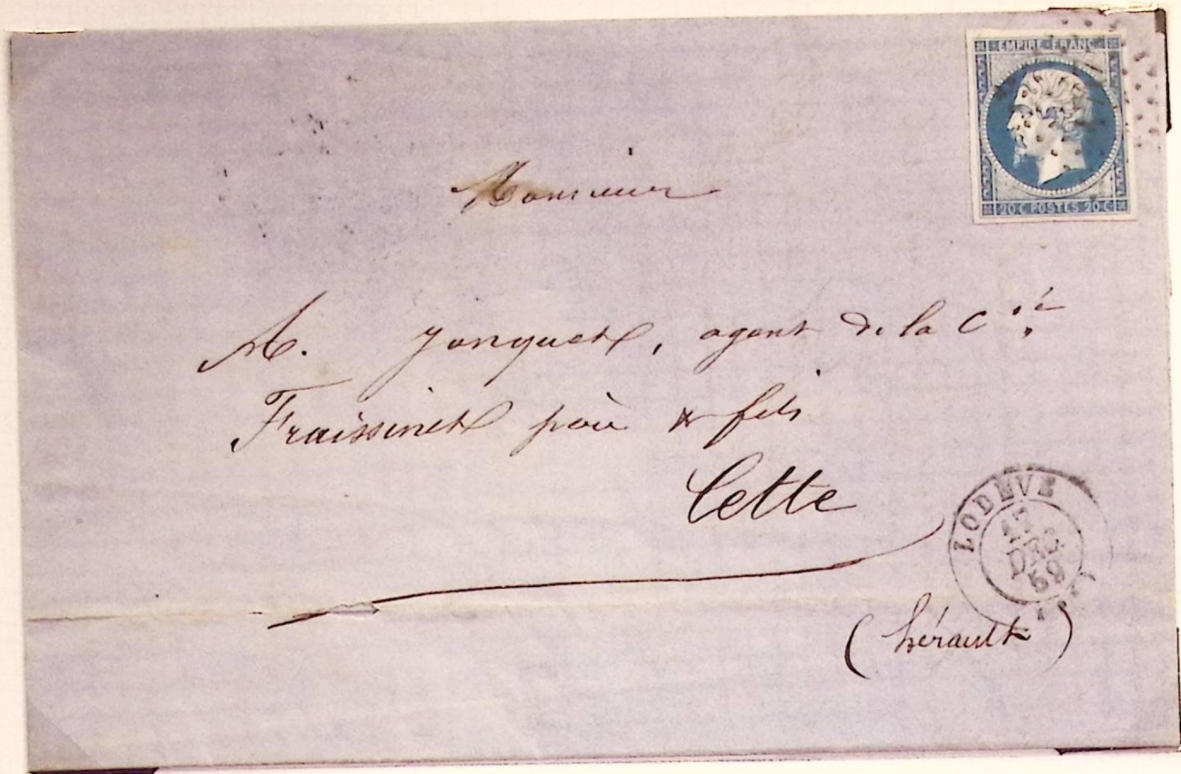 EMPIRE FRANC.
20 C POSTES 20 C
Monsieur
A. Jonquet, agent de la Cie
Fraissinet père & fils
Cette
LODÈVE
17
DEC
59
(hérault)